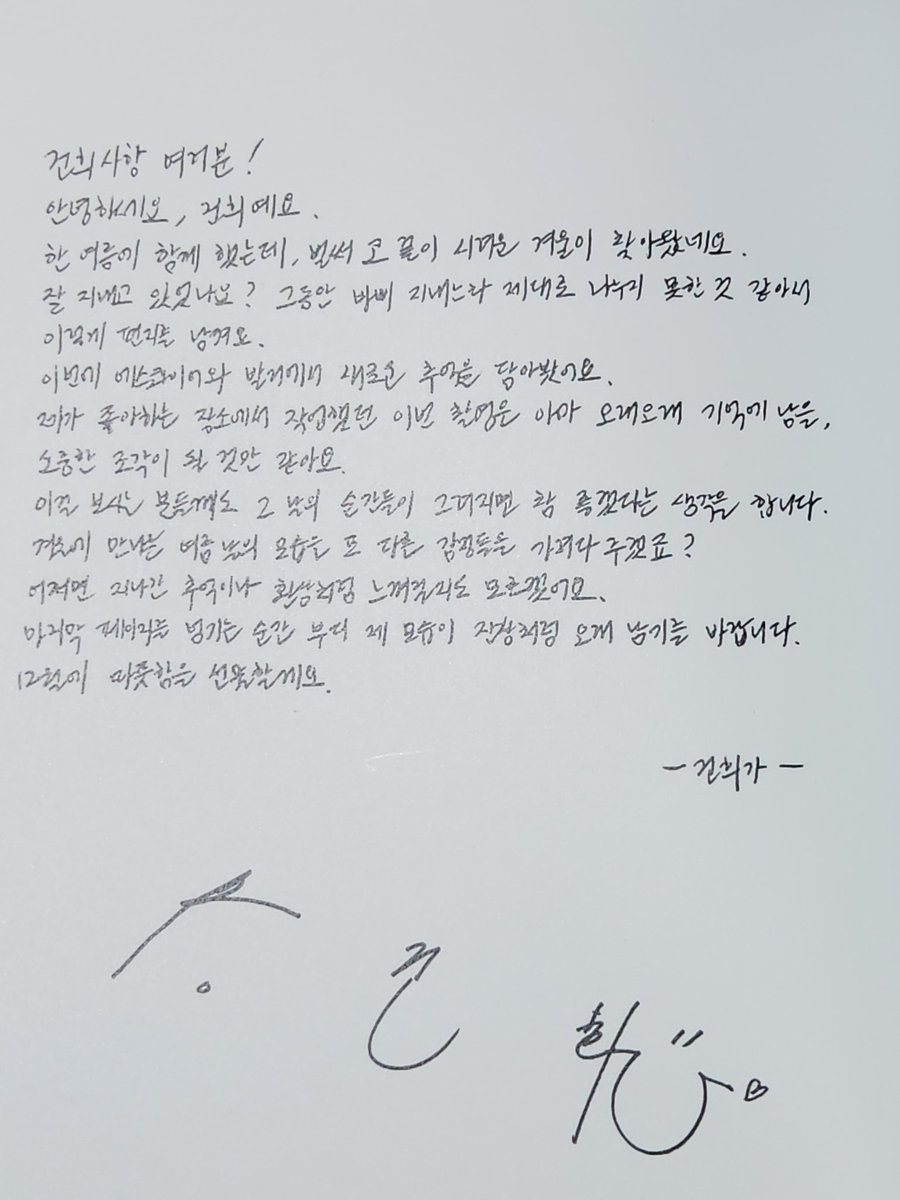 건희사항 여러분!
안녕하세요, 건희예요.
한 여름에 함께 했는데, 벌써 코 끝이 시려운 겨울이 찾아왔네요.
잘 지내고 있었나요? 그동안 바삐 지내느라 제대로 나누지 못한 것 같아서
이렇게 편지를 남겨요.
이번에 에스콰이어와 발리에서 새로운 추억을 담아봤어요.
제가 좋아하는 장소에서 작업했던 이번 촬영은 아마 오래오래 기억에 남을,
소중한 조각이 될 것만 같아요.
이걸 보시는 분들께도 그 날의 순간들이 그려지면 참 좋겠다는 생각을 합니다.
겨울에 만나는 여름 날의 모습은 또 다른 감정들을 가져다 주겠죠?
어쩌면 지나간 추억이나 환상처럼 느껴질지도 모르겠어요.
마지막 페이지를 넘기는 순간 부디 제 모습이 잔상처럼 오래 남기를 바랍니다.
12월에 따뜻함을 선물할게요.
- 건희가 -